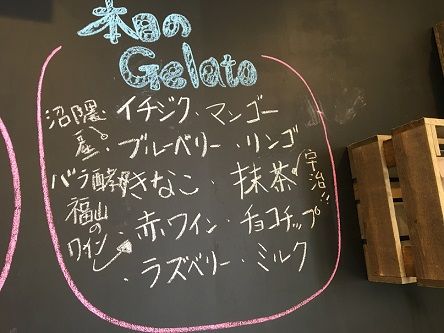 本日の
Gelato
沼隈産 イチジク・マンゴー
・ブルーベリー・リンゴ
バラ酵母きなこ・抹茶 宇治!!
福山のワイン ・赤ワイン・チョコチップ
・ラズベリー・ミルク